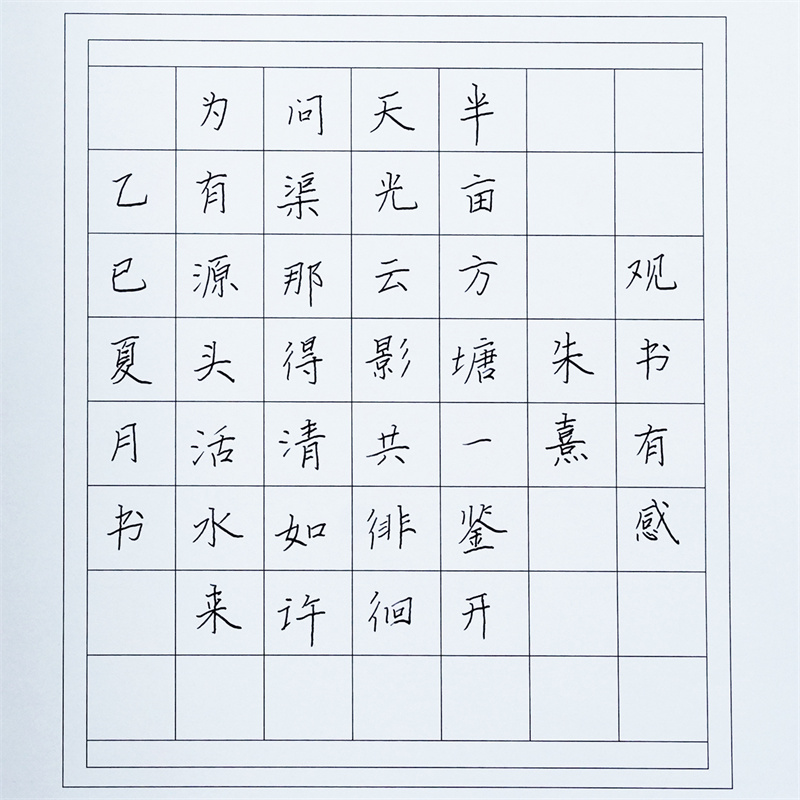 观书有感
朱熹
半亩方塘一鉴开
天光云影共徘徊
问渠那得清如许
为有源头活水来
乙巳夏月书